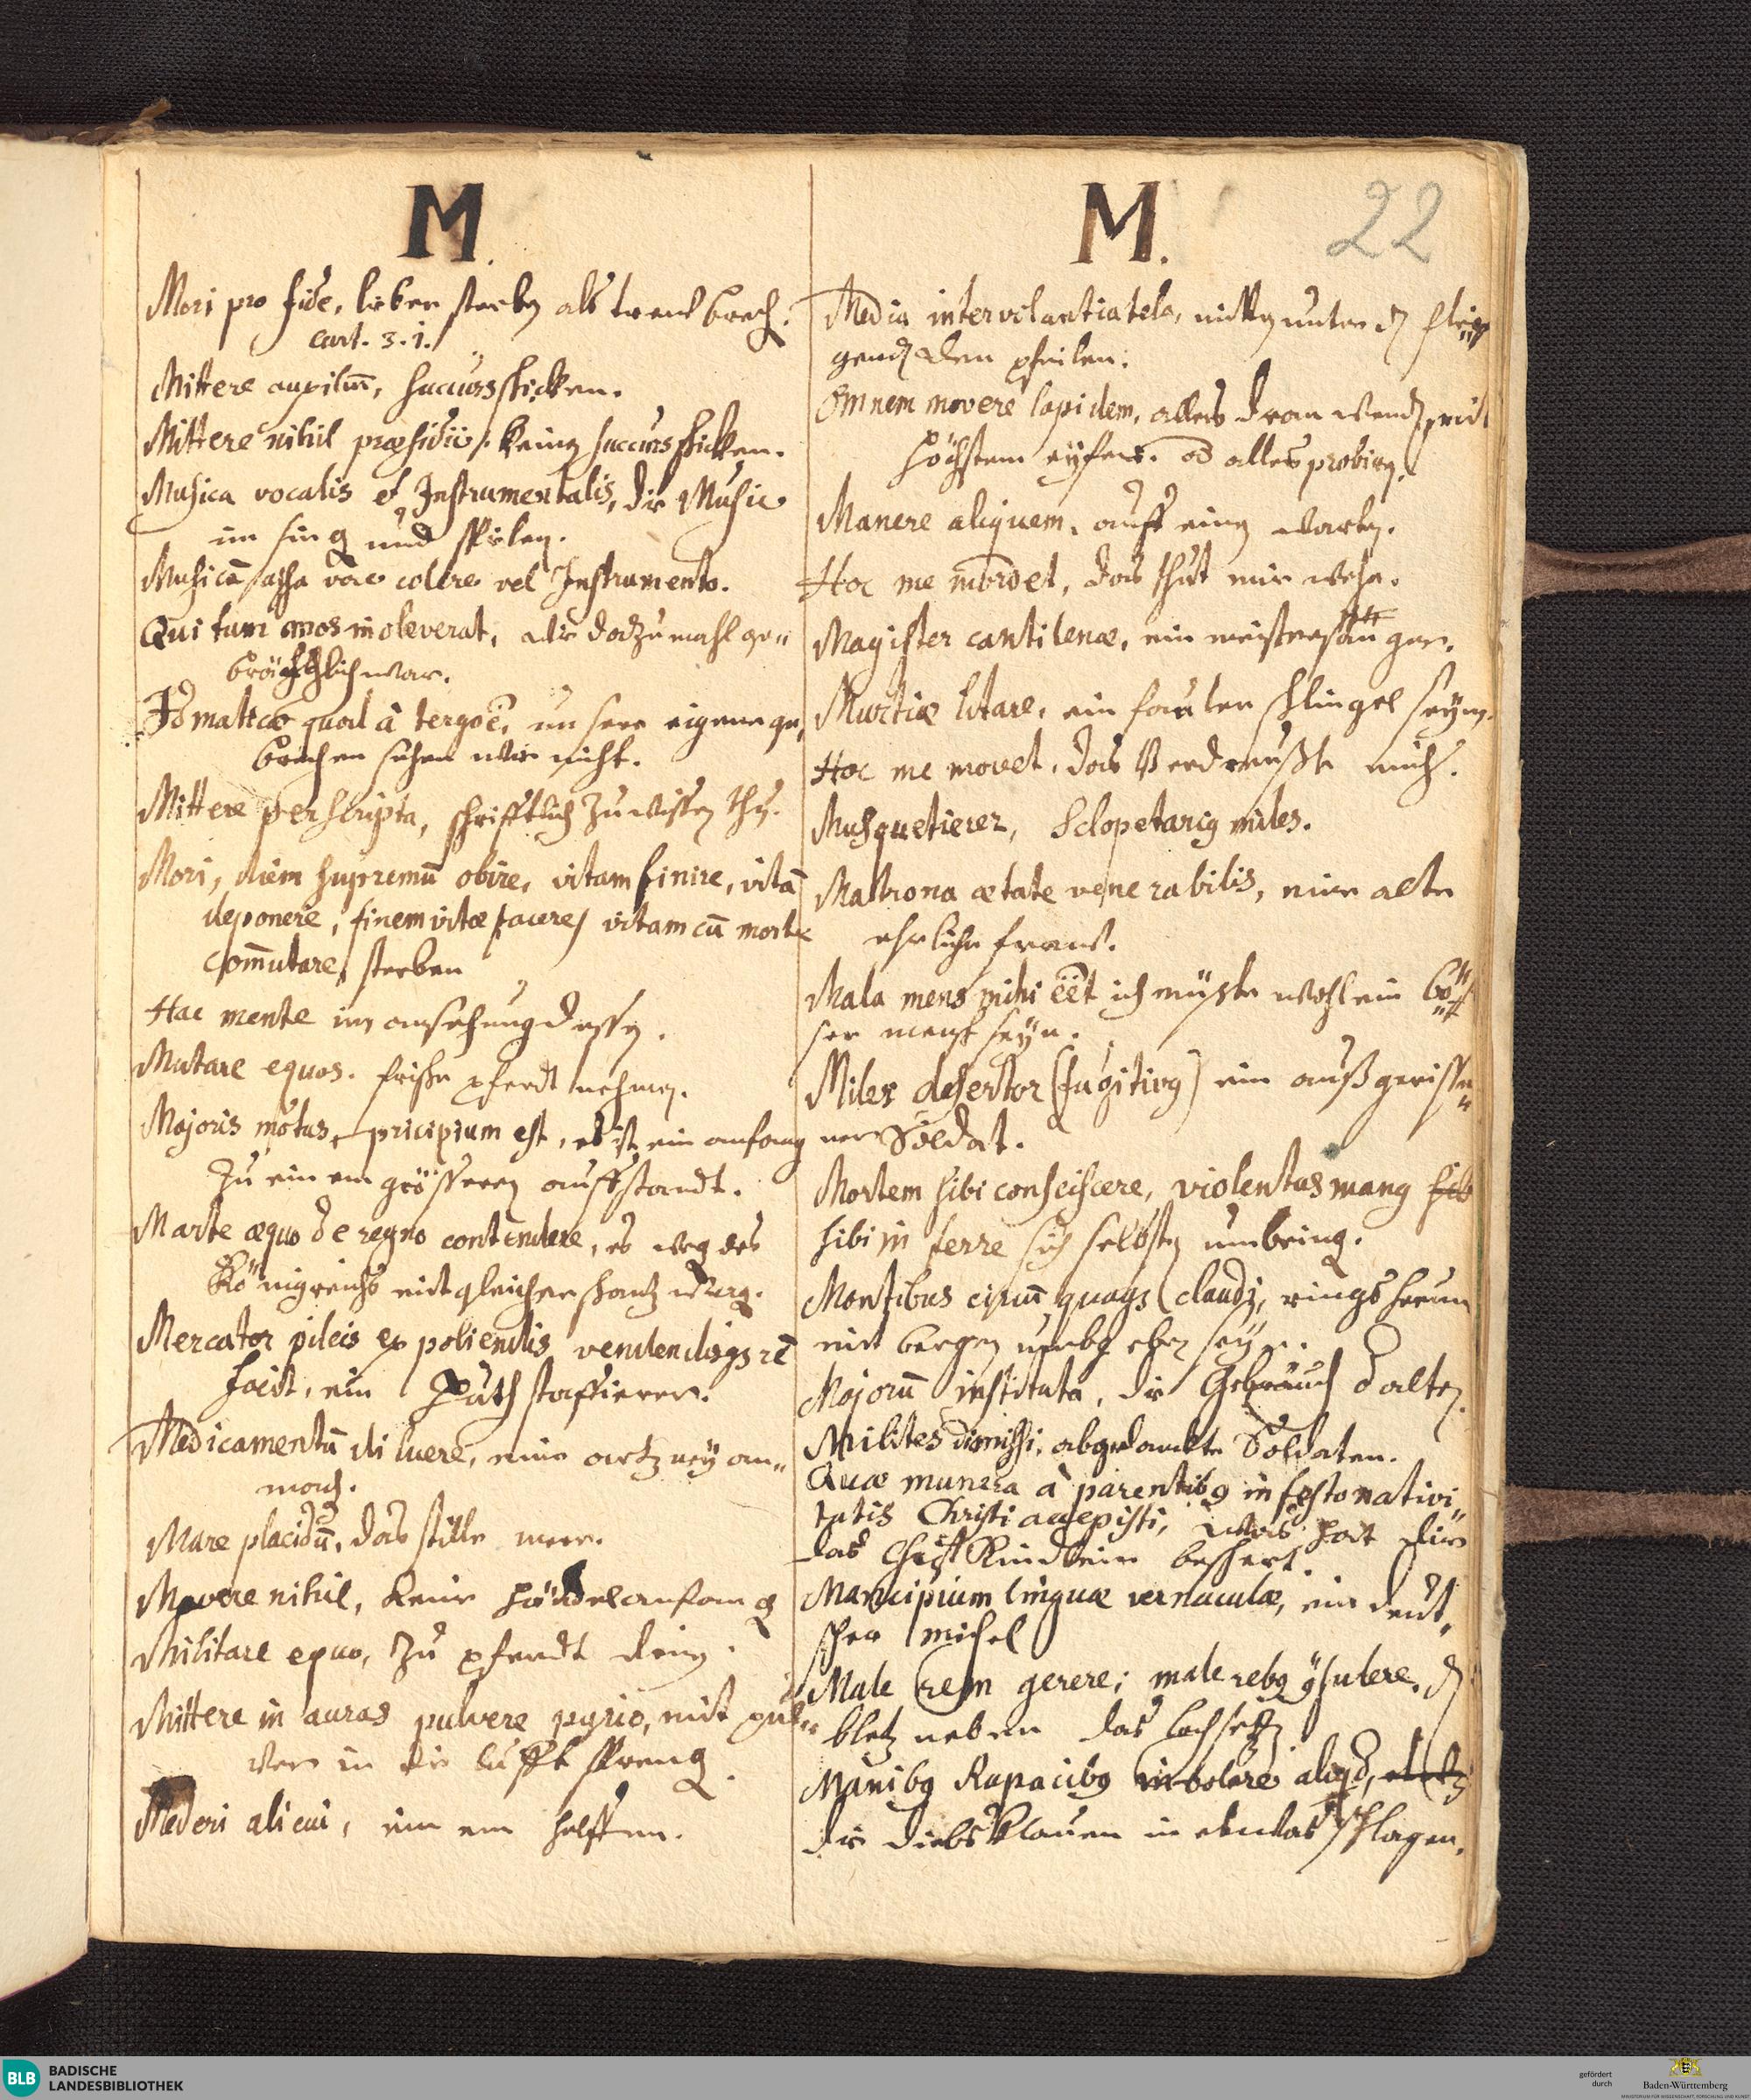 M.
Mori pro fide, lieber sterben als treu brech.
Curt. 3. 1.
Mittere auxiliū, succurs schicken.
Mittere nihil præsidii, keinen succurs schicken.
Musica vocalis et Instrumentalis, die Music
im sing und spielen.
Musicā assa voce colere vel Instrumento.
Qui tum mos inoleverat, wie dazumahl ge„
bräuchlich war.
Id manticæ quod à tergo ē, unsere eigene ge„
brechen sehen wir nicht.
Mittere perscripta, schrifftlich zu wissen thun.
Mori, diem supremū obire, vitam finire, vitā
deponere, finem vitæ facere, vitam cū morte
com̄utare, sterben
Hac mente in ansehung dessen.
Mutare equos. frische pferdt nehmen.
Majoris motus principium est, es ist ein anfang
zu einem grösseren auffstandt.
Marte æquo de regno contendere, es weg des
Königreichs mit gleicher schantz wag.
Mercator pileis expoliendis vendendisqs rē
facit, ein Huth staffierer.
Medicamentū diluere, eine artzney an„
mach.
Mare placidū, das stille meer.
Movere nihil, keine händel anfang
Militare equo, zu pferdt dien.
Mittere in auras pulvere pyrio, mit pul„
ver in die lufft spreng.
Mederi alicui, einem helffen.
M.
22
Media inter volantia tela, mitten unter den flie„
genden pfeilen.
Omnem movere lapidem, alles dran wenden, mit
höchstem eyfer. od alles probiren.
Manere aliquem, auff einen warten.
Hoc me mordet, das thut mir wehe.
Magister cantilenæ, ein meistersänger.
Murtiæ litare, ein fauler schlingel seyn.
Hoc me movet, das Verdreußt mich.
Musquetierer, Sclopetarig miles.
Matrona ætate venerabilis, eine alte
ehrliche frau.
Mala mens mihi eēt ich müste wohl ein bö„
ser mensch seyn.
Miles desertor (fugitivg) ein außgerisse„
ner Soldat.
Mortem sibi consciscere, violentas mang sib
sibi in ferre sich selbsten umbring.
Montibus circū quaqs claudi, rings herum
mit bergen umbgeben seyn.
Majorū instituta, die Gebräuch d alten.
Milites dimissi, abgedanckte Soldaten.
Quæ munera à parentibg in festo nativi„
tatis Christi accepisti, was hat dir
das Christ Kindlein beschert.
Mancipium linguæ vernaculæ, ein deut„
scher michel
Male rem gerere; male rebg consulere. den
bletz neben das loch setzen
Manibg Rapacibg involare aliqd, etwz
die diebs Klauen in etwas schlagen.
BLB BADISCHE
LANDESBIBLIOTHEK
gefördert
durch
Baden-Württemberg
MINISTERIUM FÜR WISSENSCHAFT, FORSCHUNG UND KUNST